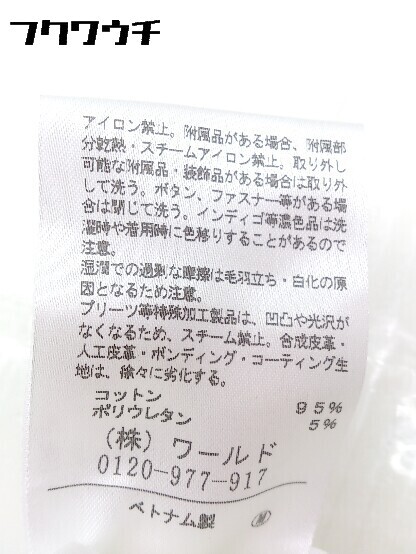 フクワウチ
アイロン禁止。附属品がある場合、附属部
分乾熱・スチームアイロン禁止。取り外し
可能な附属品・装飾品がある場合は取り外
して洗う。ボタン、ファスナー等がある場
合は閉じて洗う。インディゴ等濃色品は洗
濯時や着用時に色移りすることがあるので
注意。
湿潤での過剰な摩擦は毛羽立ち・白化の原
因となるため注意。
プリーツ等特殊加工製品は、凹凸や光沢が
なくなるため、スチーム禁止。合成皮革・
人工皮革・ボンディング・コーティング生
地は、徐々に劣化する。
コットン 95%
ポリウレタン 5%
(株) ワールド
0120-977-917
ベトナム製 M